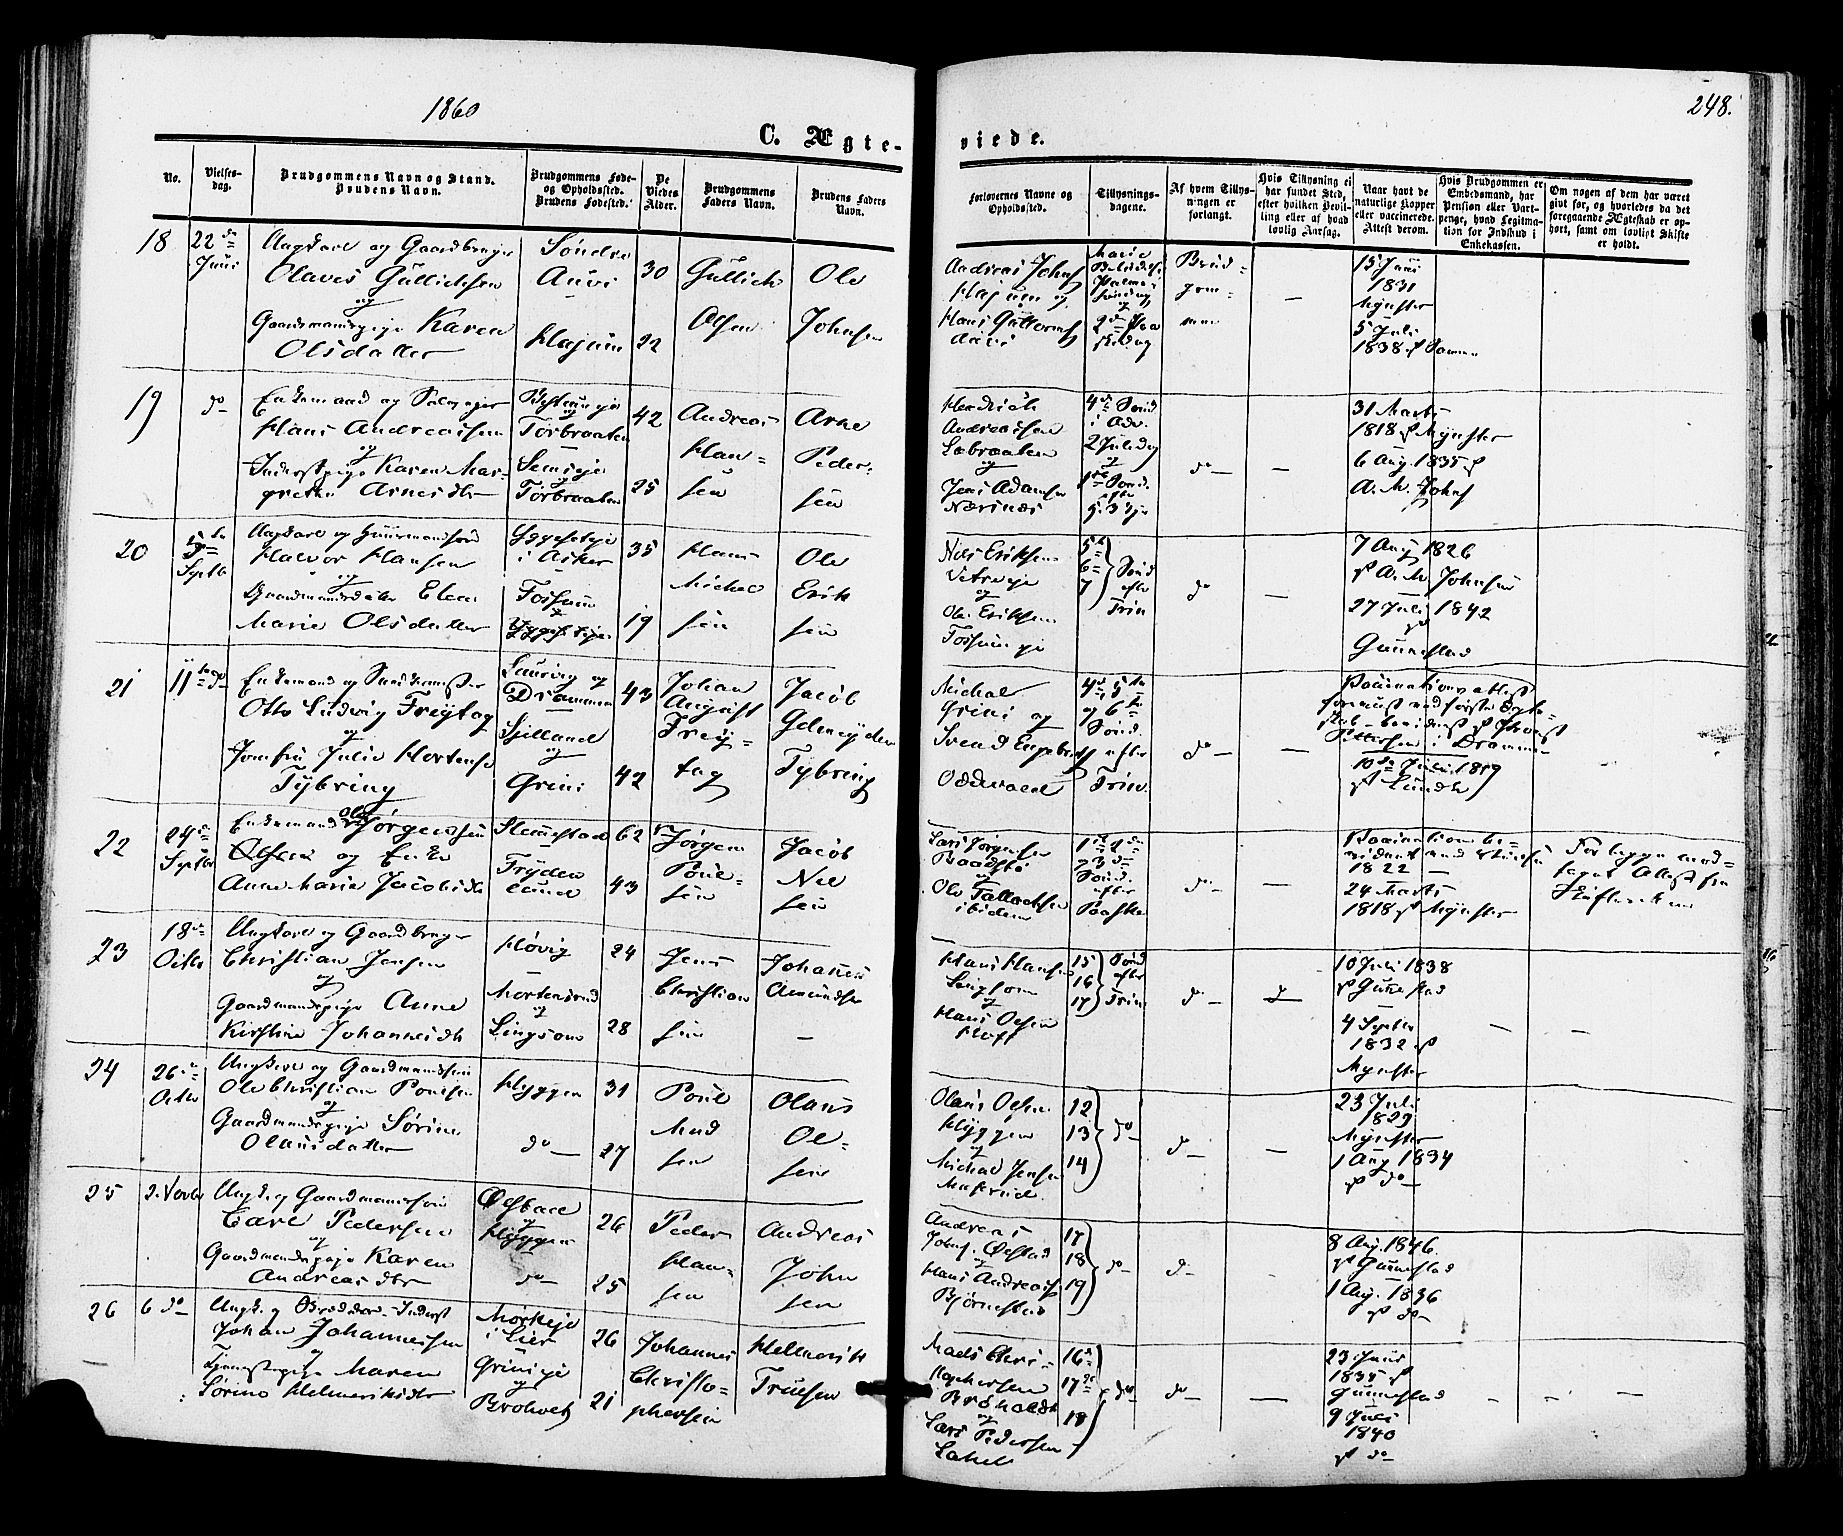 1860
248.
C. Ægte-
viede.
No.
Vielses-
dag.
Brudgommens Navn og Stand.
Brudens Navn.
Brudgommens Føde-
og Opholdssted.
Brudens Fødested.
De
Viedes
Alder.
Brudgommens
Faders Navn.
Brudens Faders
Navn.
Forlovernes Navne og
Opholdssted.
Tillysnings-
dagene.
Af hvem Tillys-
ningen er
forlangt.
Hvis Tillysning ei
har fundet Sted,
efter hvilken Bevil-
ling eller af hvad
lovlig Aarsag.
Naar havt de
naturlige Kopper
eller vaccinerede.
Attest derom.
Hvis Brudgommen er
Embedsmand, har
Pension eller Vart-
penge, hvad Legitima-
tion for Indskud i
Enkekassen.
Om nogen af dem har været
givt før, og hvorledes da det
foregaaende Ægteskab er op-
hørt, samt om lovligt Skifte
er holdt.
18
22de
Juni
Ungkarl og Gaardbruger
Olaves Gullichsen
og
Gaardmandspige Karen
Olsdatter
Søndre
Auvi
Hajum
30
22
Gullich
Olsen
Ole
Johnsen
Andreas Johns
Hajum og
Hans Guttorms
Brud-
gom-
men
—
15 Juni
1831
Mynster
5 Juli
1838
19
do
Enkemand og
Hans Andreassen
og
Inderstpige Karen Mar-
grethe Arnesdtr
og
Torbraaten
Semseje
og
Torbraaten
42
25
Andreas
Han-
sen
Arne
Peder-
sen
Hendrich
Andreassen
Labraaten
og
Jens Adamsen
Nærsnæs
4de Sønd
i Adv.
2 Juledag
og
1ste Sønd.
efter
do
—
31 Marts
1818 p Mynster
6 Aug. 1835 p
A. M. Johns
20
5te
Septb
Ungkarl og Huusmandssøn
Halvor Hansen
og
Gaardmandsdatter Elen
Marie Olsdatter
i Asker
Fossum
35
19
Hans
Michel
sen
Ole
Erik
sen
Niels Eriksen
og
Ole Eriksen
Fossumeje
5te
6
7
Sønd
efter
Trin
do
—
7 Aug 1826
p A. M. Johnsen
27 Juli 1842
p
Gunnestad
21
11te do
Enkemand og Snedkermester
Otto Ludvig Freytag
og
Jomfru Julie Hortense
Tybring
Laurvig og
Drammen
Sjelland
og
Grini
43
42
Johan
August
Frey-
tag
Jacob
Tybring
Michael
Grini og
Svend Engebret
Oddevald
4de, 5te
og 6te
Sønd.
efter
Trin.
do
—
Vaccinationsattest
i Drammen
10de Juli 1819
p Lunde
22
24de
Septbr
Enkemand Ole Jørgensen
Olsen og Enke
Anne Marie Jacobsdtr
Slemmestad
Fryden
lund
62
43
Jørgen
Poul-
sen
Jacob
Niel
sen
Lars Jørgensen
og
Ole Tallachsen
ibidem
Sønd.
efter
Paaske
do
—
1822 —
24 Marts
1818 p Mynster
23
18de
Octbr
Ungkarl og Gaardbruger
Christian Jensen
og
Gaardmandspige Anne
Kirstine Johannesdtr
Høvig
—
Mortensrud
og
Lingsom
24
28
Jens
Christian
sen
Johannes
Amundsen
—
Hans Hansen
Lingsom
og
Hans Olsen
Hoff
15
16
17
Sønd
efter
Trin
do
—
10 Juli 1838
p Gunnestad
4 Septbr
1832 p
Mynster
—
—
24
26de
Octbr
Ungkarl og Gaardmandssøn
Ole Christian Poulsen
og
Gaardmandspige Sørine
Olausdatter
Hyggen
do
31
27
Poul
Mad
sen
Olaus
Ol-
sen
Olaus Olsen
Hyggen
og
Michel Jensen
12
13
14
do
do
—
23 Juli
1829
Mynster
1 Aug 1834
p do
25
2. Novbr
Ungk. og Gaardmandssøn
Carl Pedersen
og
Gaardmandspige Karen
Andreasdtr
Ølstad
Hyggen
do
26
25
Peder
Han-
sen
Andreas
John
sen
Andreas
Johns. Ølstad
Hans Andreas
Bjørnestad
17
18
19
do
do
-
8 Aug. 1846.
p Gunnestad
1 Aug. 1836
p do
26
6 do
Ungk. og Inderst
Johan Johannessen
og
Tjenestepige Maren
Sørine Helmeriksdtr
i Lier
Grinieje
og
Brohvet
26
21
Johannes
Christo-
phersen
Helmerik
Truesen
Mads Chri-
stophersen
og
Lars Pedersen
16
17
18
do
do
—
23 Juni
1835 p
Gunnestad
9 Juli
1840
p do
-
-
—